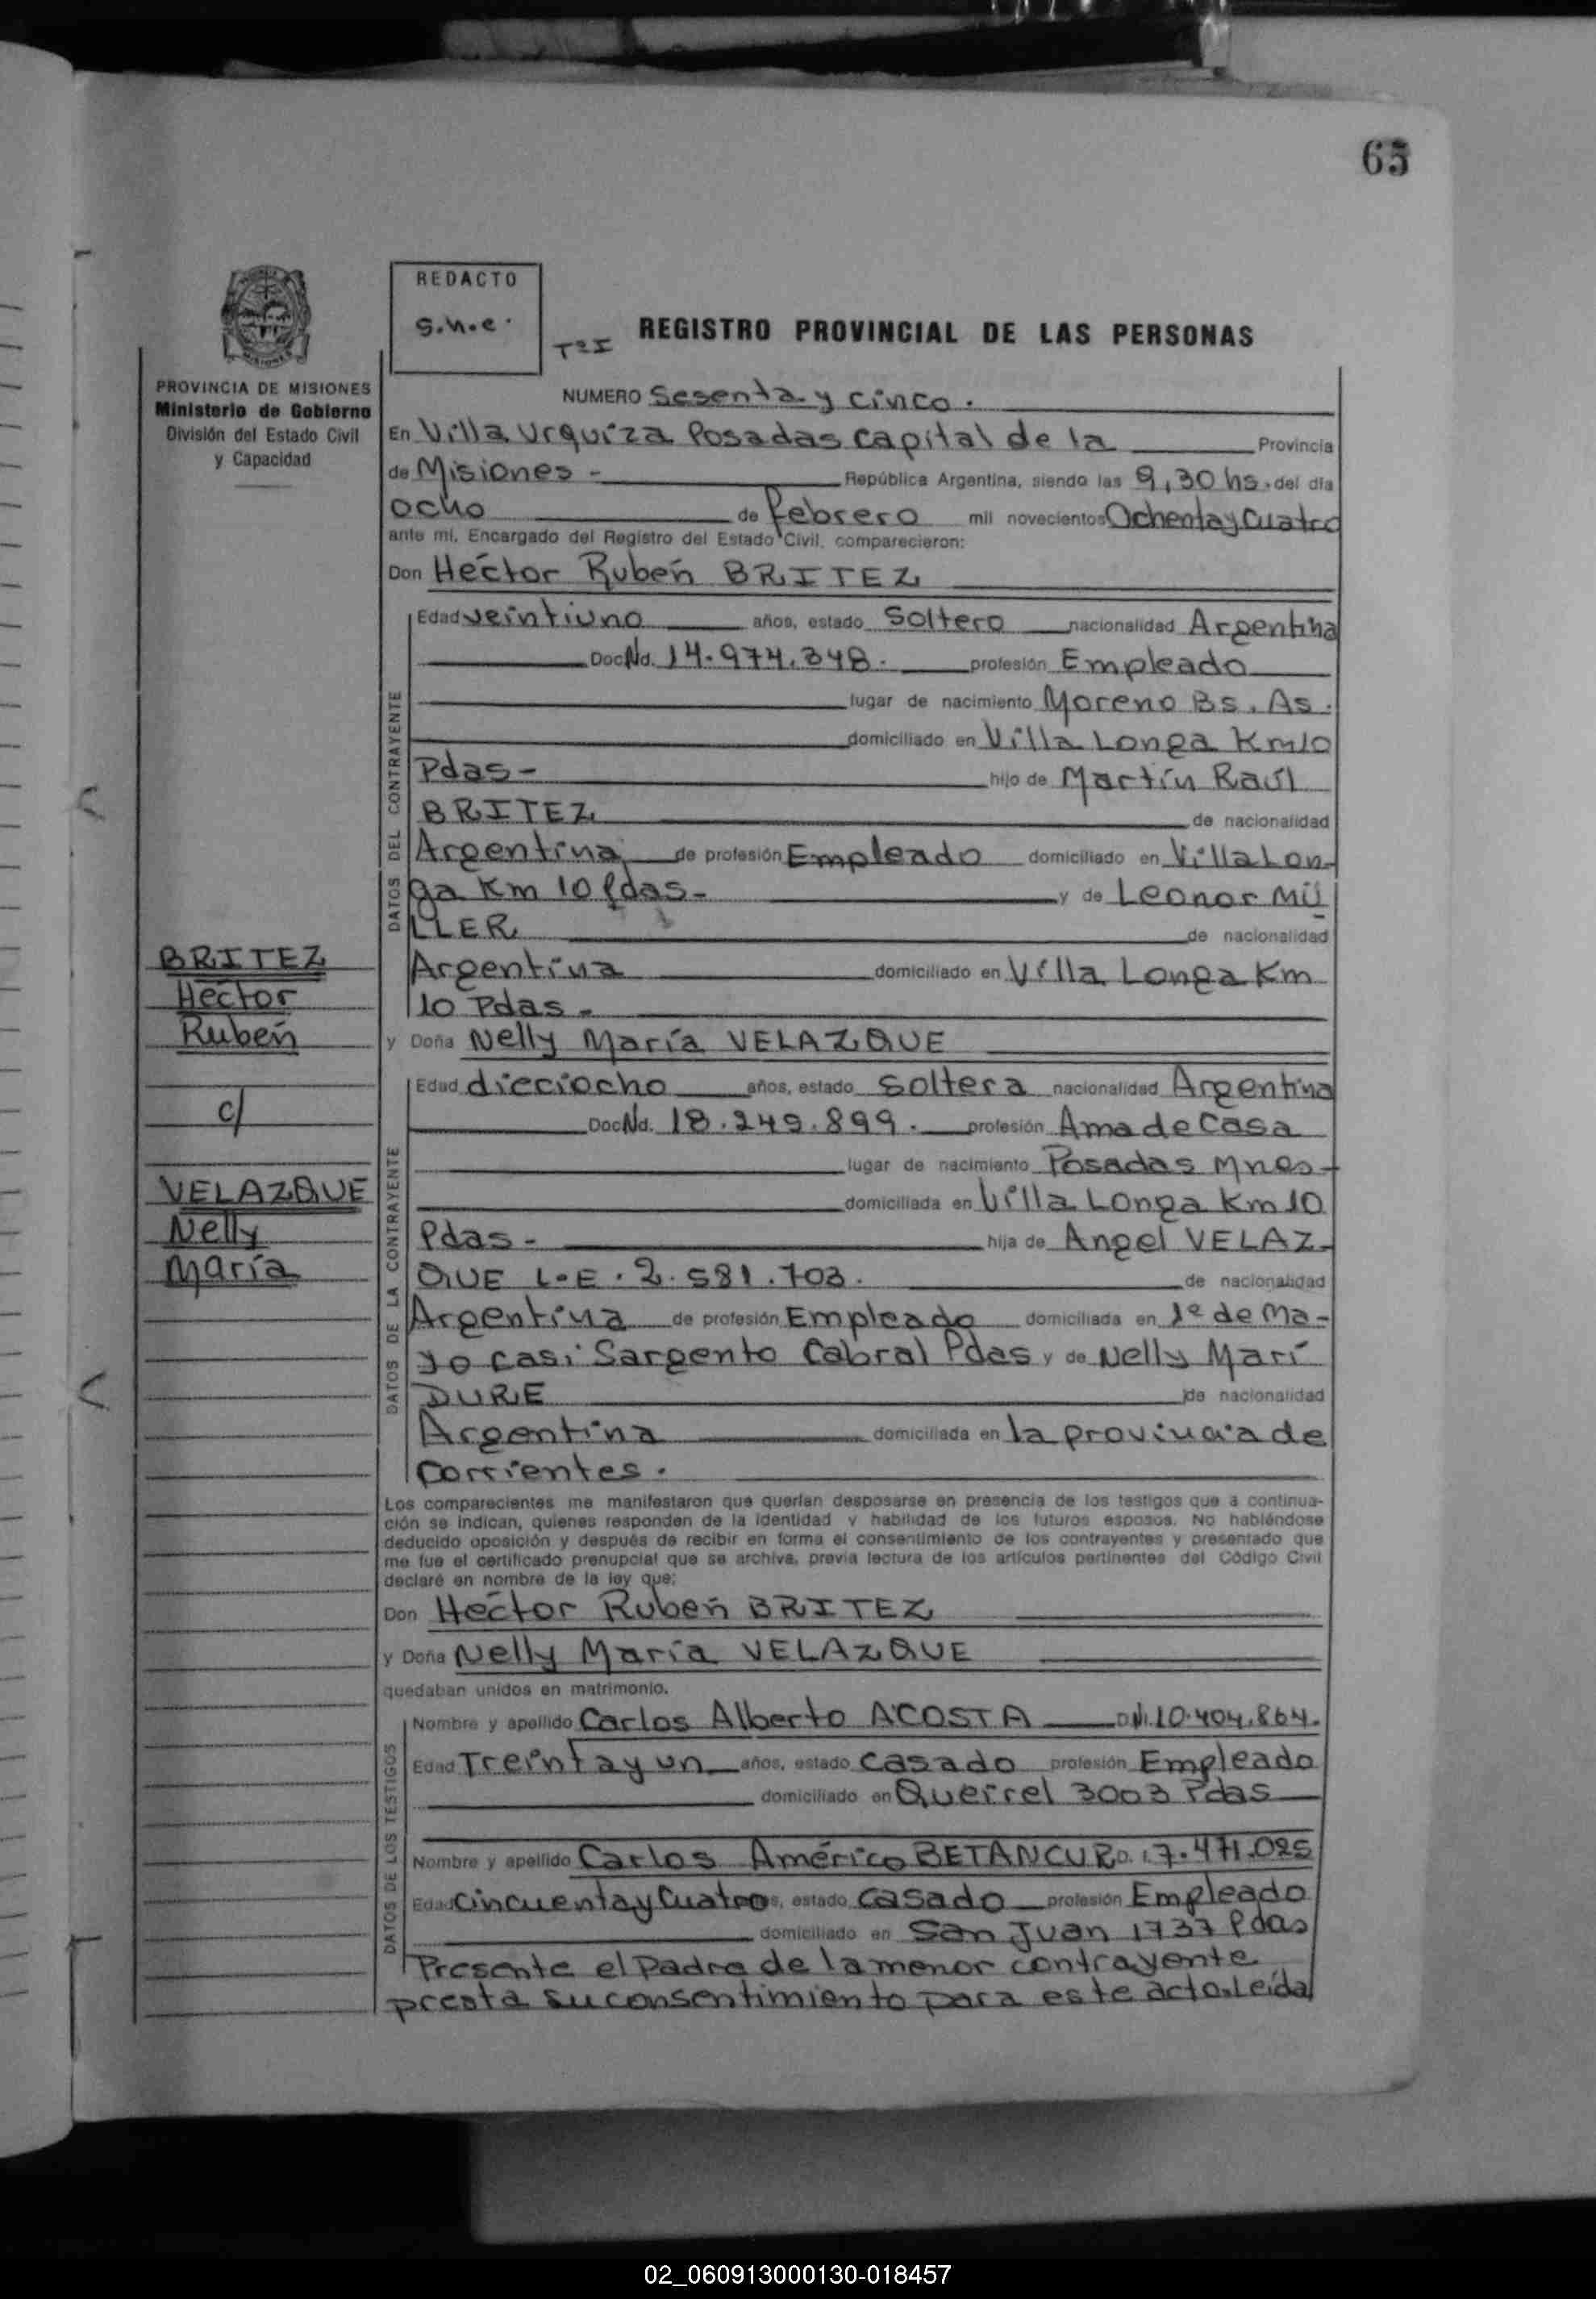 65
REDACTO
S.N.C.
TºI
REGISTRO PROVINCIAL DE LAS PERSONAS
PROVINCIA DE MISIONES
Ministerio de Gobierno
División del Estado Civil
y Capacidad
NUMERO Sesenta y cinco.
En Villa Urquiza Posadas capital de la Provincia
de Misiones - República Argentina, siendo las 9,30 hs. del día
ocho de febrero mil novecientos Ochenta y Cuatro
ante mí, Encargado del Registro del Estado Civil, comparecieron:
Don Héctor Rubén BRITEZ
DATOS DEL CONTRAYENTE
Edad veintiuno años, estado Soltero nacionalidad Argentina
Doc Nd. 14.974.348. profesión Empleado
lugar de nacimiento Moreno Bs. As.
domiciliado en Villa Longa Km 10
Pdas- hijo de Martín Raúl
BRITEZ de nacionalidad
Argentina de profesión Empleado domiciliado en Villa Lon-
ga Km 10 Pdas- y de Leonor MÜ
LLER de nacionalidad
Argentina domiciliado en Villa Longa Km
10 Pdas -
y Doña Nelly María VELAZQUE
BRITEZ
Héctor
Rubén
c/
VELAZQUE
Nelly
María
DATOS DE LA CONTRAYENTE
Edad dieciocho años, estado soltera nacionalidad Argentina
Doc Nd. 18.249.899. profesión Ama de Casa
lugar de nacimiento Posadas Mnes-
domiciliada en Villa Longa Km 10
Pdas - hija de Angel VELAZ-
QUE L.E. 2.581.703. de nacionalidad
Argentina de profesión Empleado domiciliada en 1º de Ma-
yo casi Sargento Cabral Pdas y de Nelly Marí
DURE de nacionalidad
Argentina domiciliada en la provincia de
Corrientes.
Los comparecientes me manifestaron que querían desposarse en presencia de los testigos que a continua-
ción se indican, quienes responden de la identidad y habilidad de los futuros esposos. No habiéndose
deducido oposición y después de recibir en forma el consentimiento de los contrayentes y presentado que
me fue el certificado prenupcial que se archiva, previa lectura de los artículos pertinentes del Código Civil
declaré en nombre de la ley que:
Don Héctor Rubén BRITEZ
y Doña Nelly María VELAZQUE
quedaban unidos en matrimonio.
DATOS DE LOS TESTIGOS
Nombre y apellido Carlos Alberto ACOSTA D.N.I. 10.404.864.
Edad Treinta y un años, estado casado profesión Empleado
domiciliado en Querrel 3003 Pdas
Nombre y apellido Carlos Américo BETANCUR D. I. 7.471.025
Edad Cincuenta y Cuatro años, estado Casado profesión Empleado
domiciliado en San Juan 1737 Pdas
Presente el Padre de la menor contrayente
presta su consentimiento para este acto. Leída
02_060913000130-018457